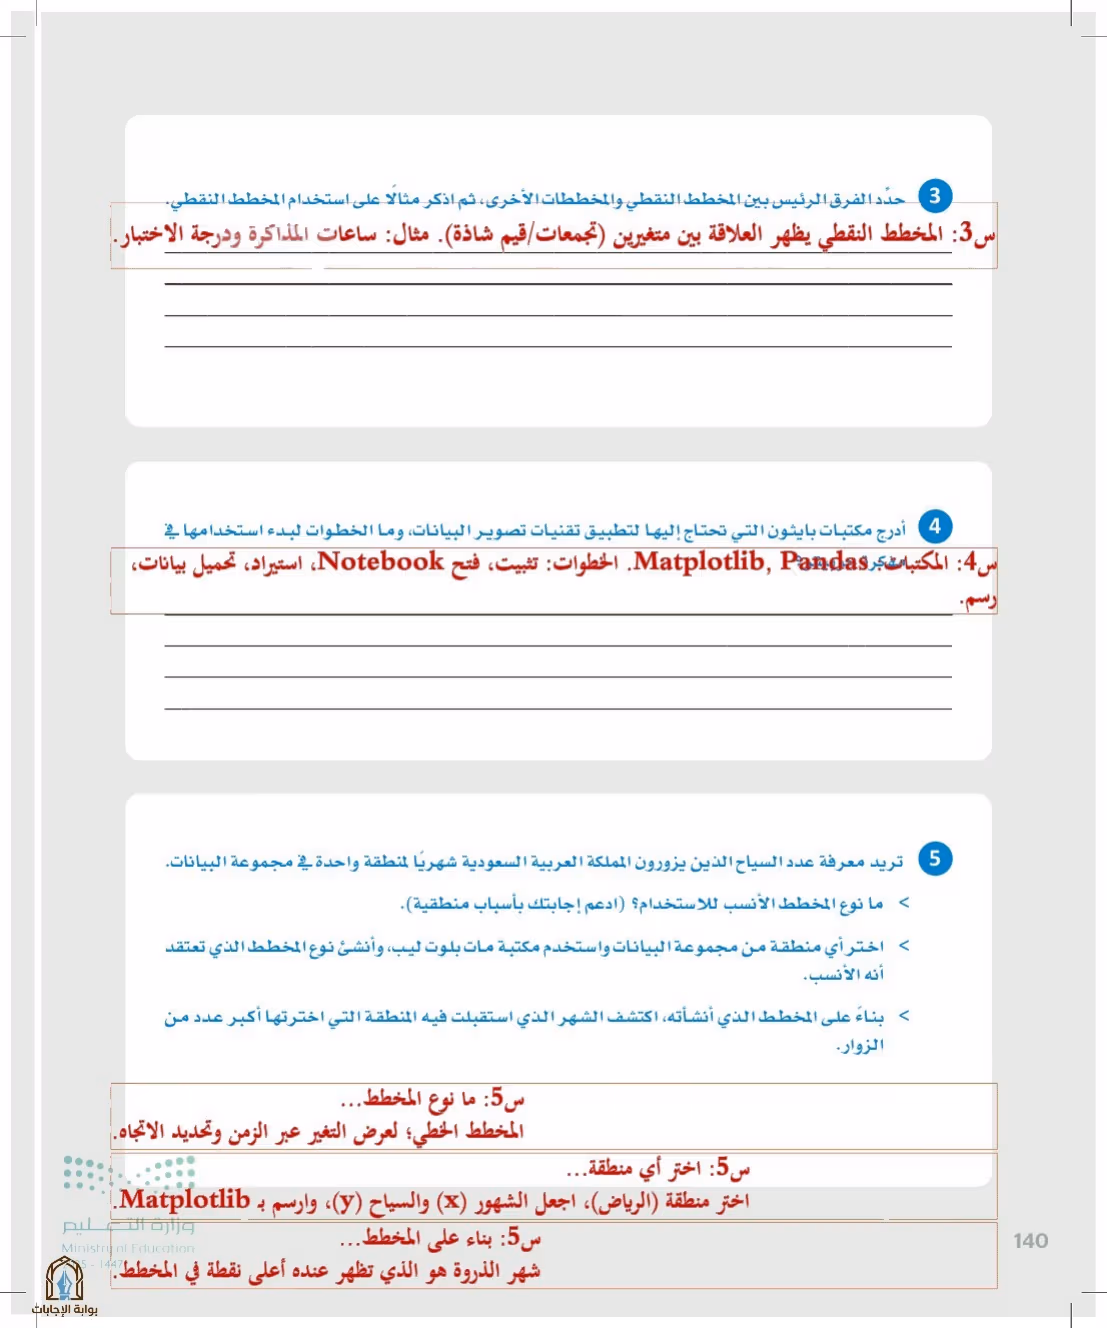 3 حدِّد الفرق الرئيس بين المخطط النقطي والمخططات الأخرى، ثم اذكر مثالًا على استخدام المخطط النقطي.
س3: المخطط النقطي يظهر العلاقة بين متغيرين (تجمعات/قيم شاذة). مثال: ساعات المذاكرة ودرجة الاختبار.
4 أدرج مكتبات بايثون التي تحتاج إليها لتطبيق تقنيات تصوير البيانات، وما الخطوات لبدء استخدامها في
س4: المكتبات: Matplotlib, Pandas. الخطوات: تثبيت، فتح Notebook، استيراد، تحميل بيانات،
رسم.
5 تريد معرفة عدد السياح الذين يزورون المملكة العربية السعودية شهريًا لمنطقة واحدة في مجموعة البيانات.
> ما نوع المخطط الأنسب للاستخدام؟ (ادعم إجابتك بأسباب منطقية).
> اختر أي منطقة من مجموعة البيانات واستخدم مكتبة مات بلوت ليب، وأنشئ نوع المخطط الذي تعتقد
أنه الأنسب.
> بناءً على المخطط الذي أنشأته، اكتشف الشهر الذي استقبلت فيه المنطقة التي اخترتها أكبر عدد من
الزوار.
س5: ما نوع المخطط...
المخطط الخطي؛ لعرض التغير عبر الزمن وتحديد الاتجاه.
س5: اختر أي منطقة...
اختر منطقة (الرياض)، اجعل الشهور (x) والسياح (y)، وارسم بـ Matplotlib.
س5: بناء على المخطط...
شهر الذروة هو الذي تظهر عنده أعلى نقطة في المخطط.
وزارة التعليم
Ministry of Education
1447
140
بوابة الإجابات